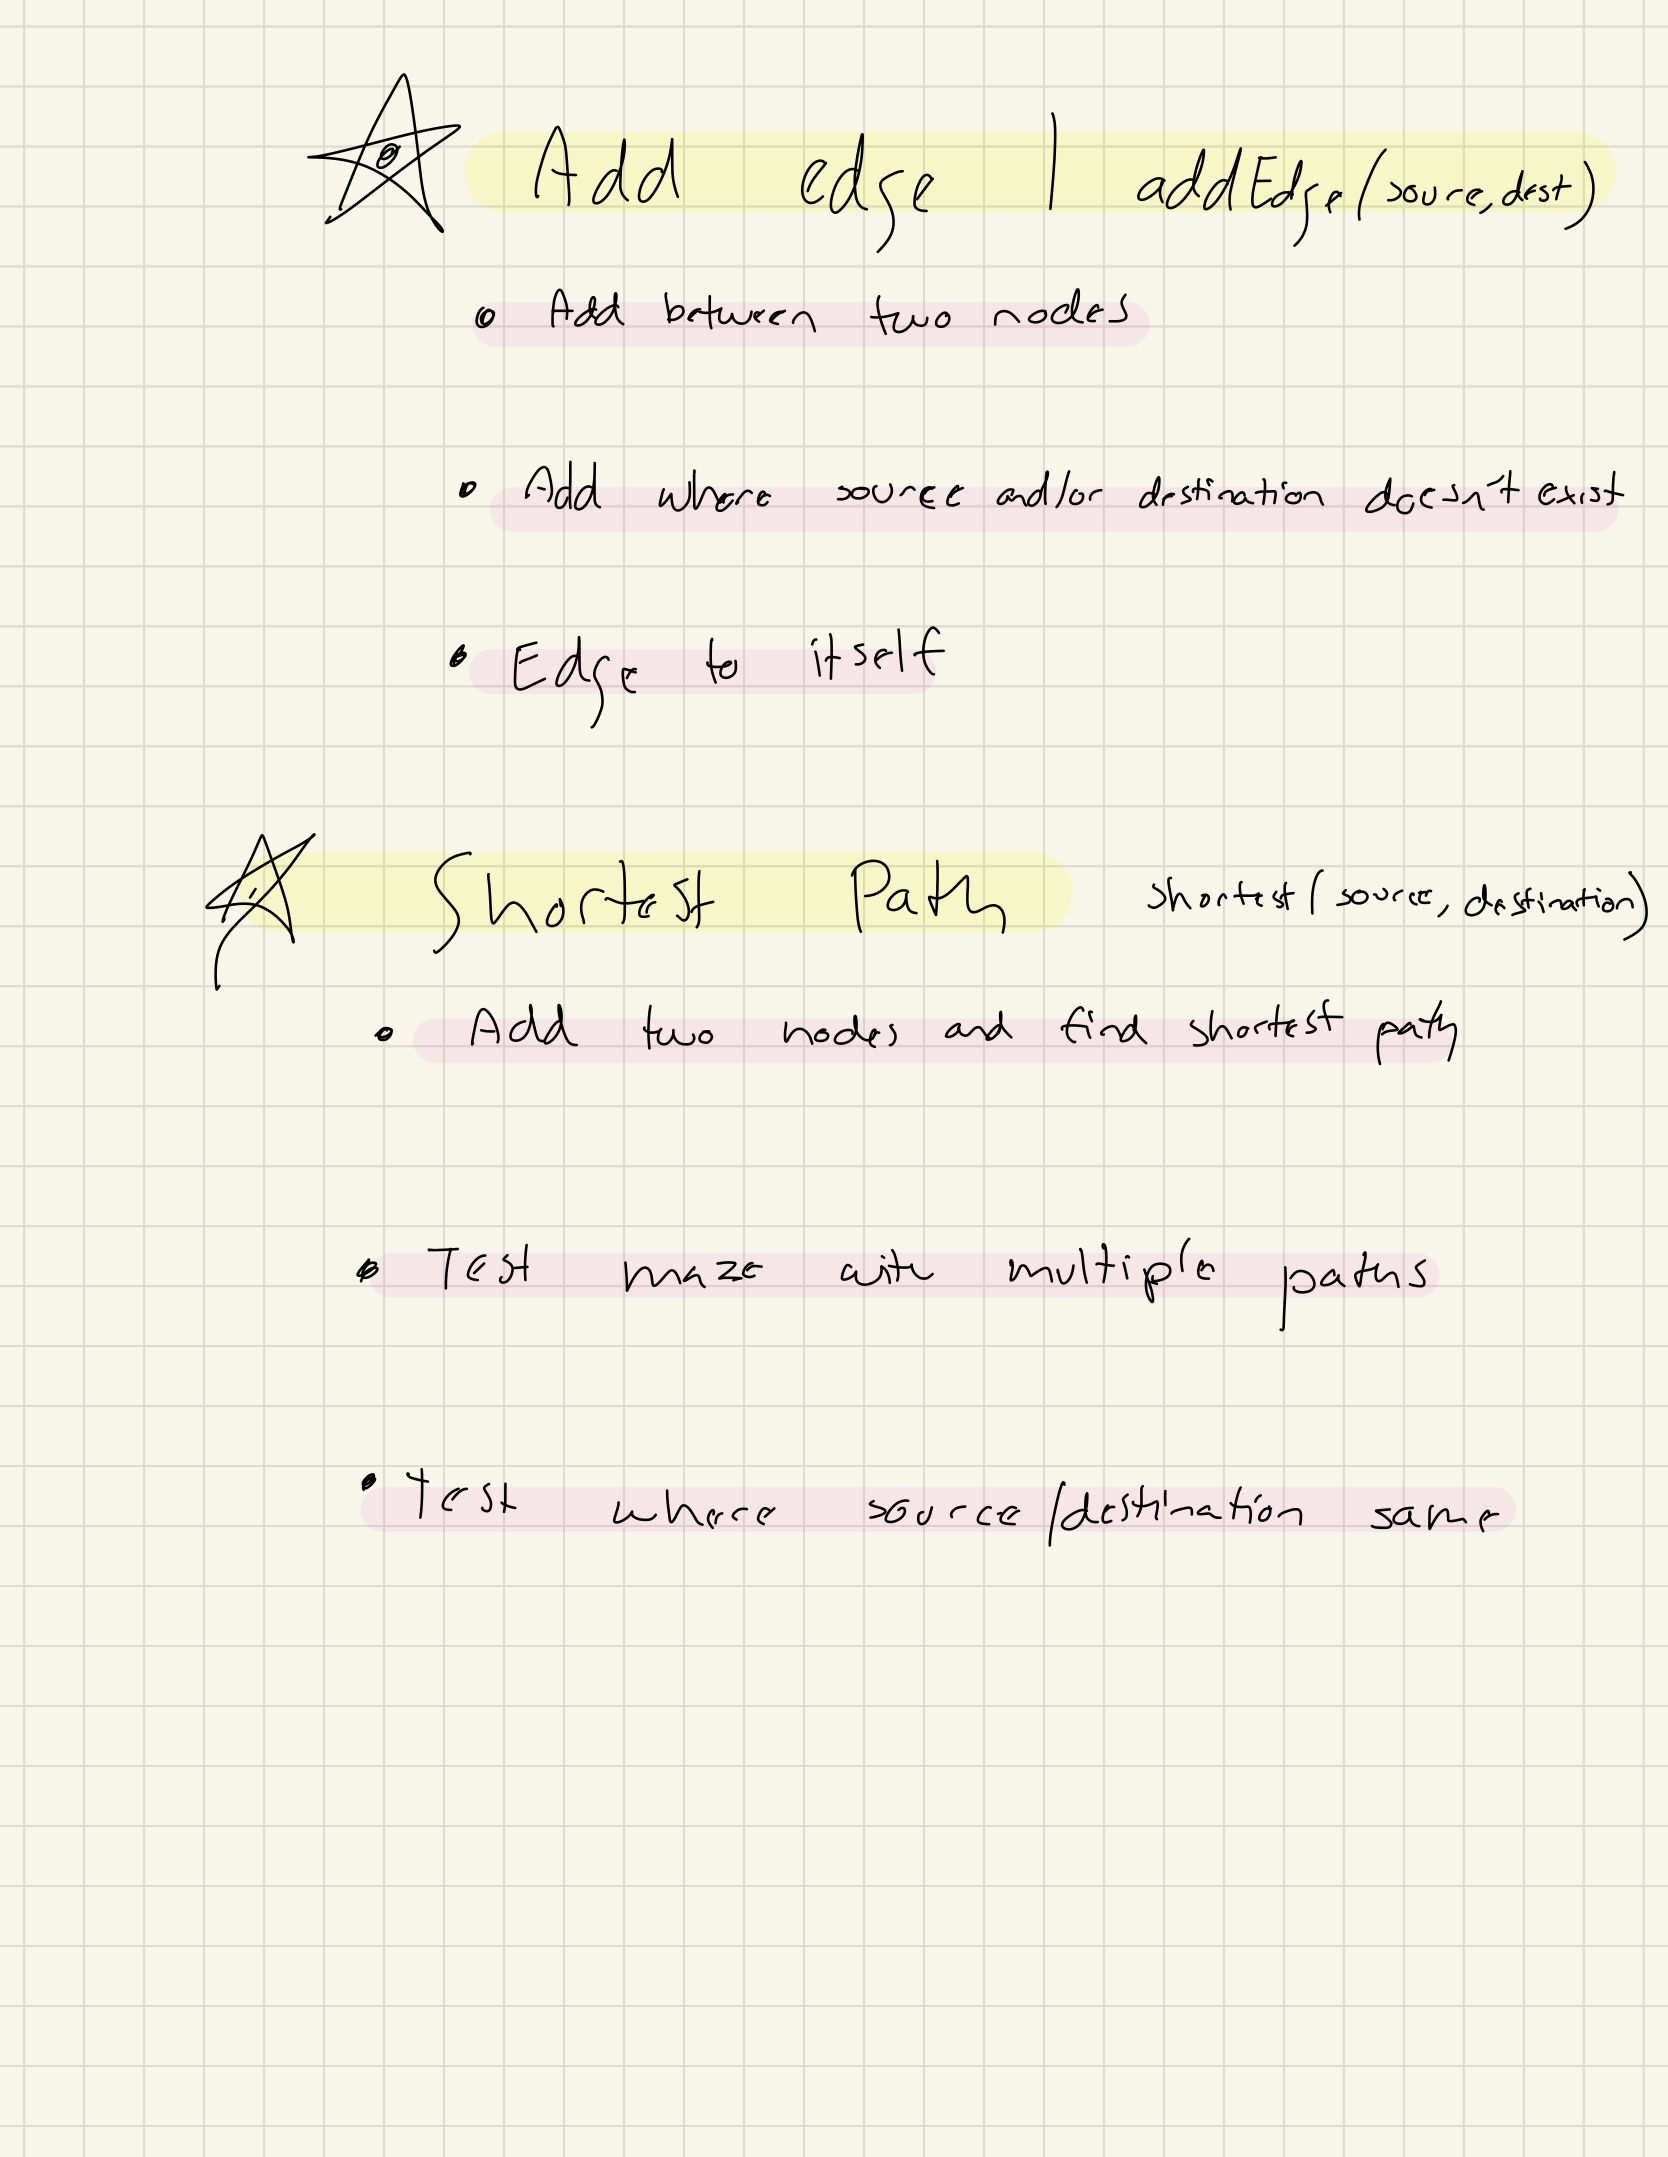 Add edge | addEdge(source, dest)
• Add between two nodes
• Add where source and/or destination doesn't exist
• Edge to itself
Shortest Path shortest(source, destination)
• Add two nodes and find shortest path
• Test maze with multiple paths
• Test where source/destination same